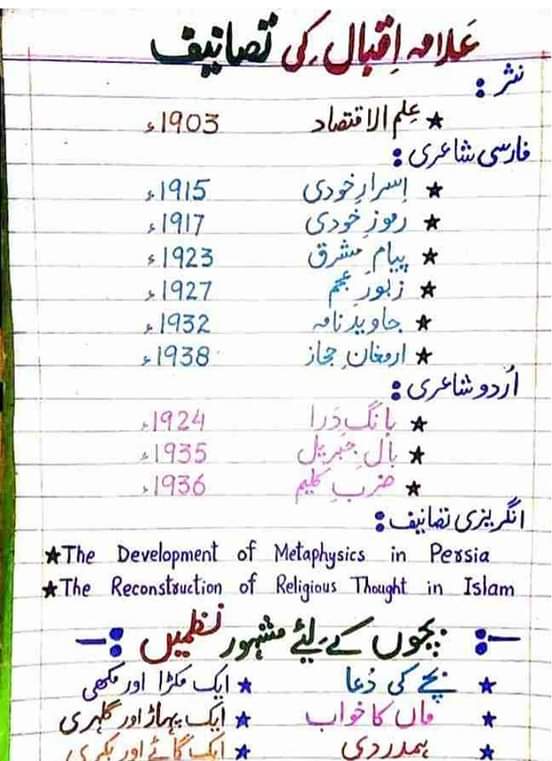 عَلامہ اِقبال کی تصانیف
نثر:
★ عِلم الاقتصاد 1903ء
فارسی شاعری:
★ اِسرارِ خودی 1915ء
★ رموزِ خودی 1917ء
★ پیامِ مشرق 1923ء
★ زبورِ عجم 1927ء
★ جاوید نامہ 1932ء
★ ارمغانِ حجاز 1938ء
اُردو شاعری:
★ بانگِ دَرا 1924ء
★ بالِ جبریل 1935ء
★ ضربِ کلیم 1936ء
انگریزی تصانیف:
★The Development of Metaphysics in Persia
★The Reconstruction of Religious Thought in Islam
بچوں کے لِئے مشہور نظمیں
★ بچے کی دُعا ★ ایک مکڑا اور مکھی
★ ماں کا خواب ★ ایک پہاڑ اور گلہری
★ ہمدردی ★ ایک گائے اور بکری